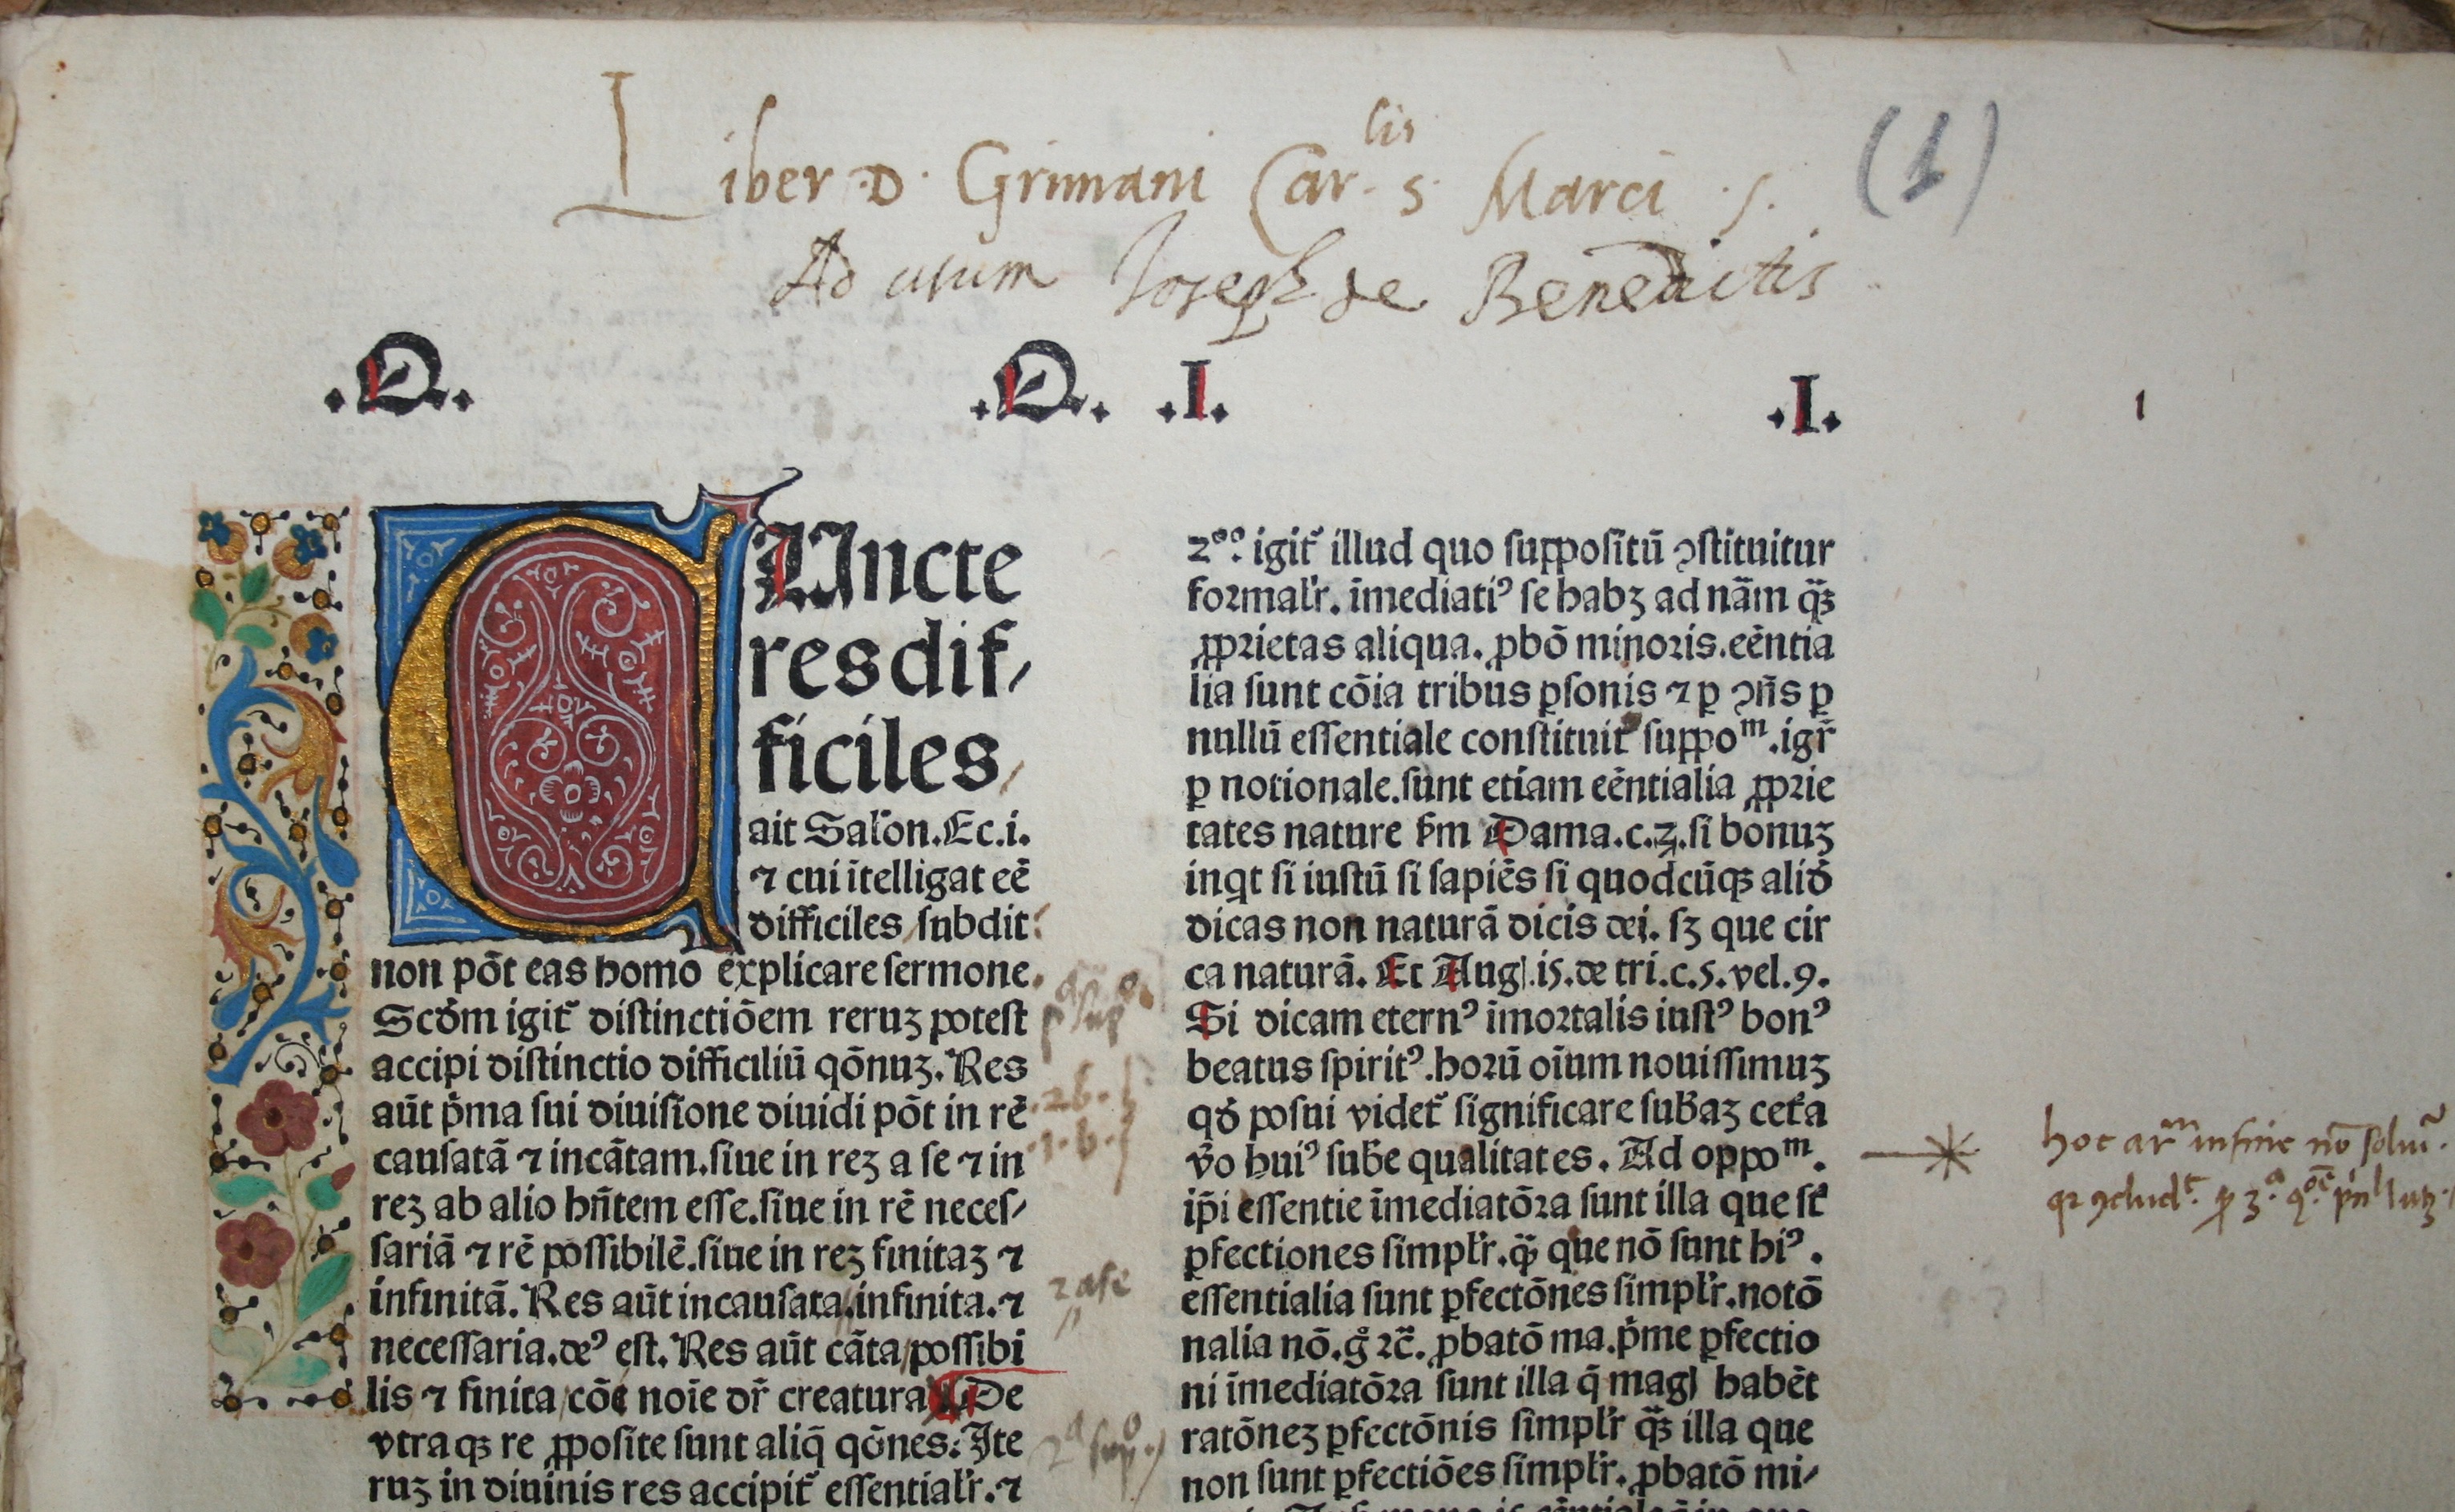 Liber D. Grimani Car.lis S. Marci
Ad usum Joseph de Benedictis
(1)
.Q. .Q. .I. .I.
1
CUncte
res dif⸗
ficiles
ait Salon. Ec. i.
⁊ cui ītelligat eē
difficiles subdit
non pōt eas homo explicare sermone.
Scdm igit᷑ distinctiōem reruꝫ potest
accipi distinctio difficiliū qōnuꝫ. Res
aūt p̄ma sui diuisione diuidi pōt in rē
causatā ⁊ incātam. siue in reꝫ a se ⁊ in
reꝫ ab alio hn̄tem esse. siue in rē neces⸗
sariā ⁊ rē possibilē. siue in reꝫ finitaꝫ ⁊
infinitā. Res aūt incausata. infinita. ⁊
necessaria. deꝰ est. Res aūt cāta possibi
lis ⁊ finita cōi noīe dr̄ creatura De
vtraqꝫ re ꝓposite sunt aliq̄ qōnes. Ite
ruꝫ in diuinis res accipit᷑ essentialr̄. ⁊
2ᵒ. igit᷑ illud quo suppositū ꝯstituitur
formalr̄. īmediatiꝰ se habꝫ ad nām qꝫ̄
ꝓprietas aliqua. ꝓbō minoris. eēntia
lia sunt cōia tribus ꝑsonis ⁊ ꝑ ꝯn̄s ꝑ
nullū essentiale constituit᷑ suppoᵐ. igr̄
ꝑ notionale. sunt etiam eēntialia ꝓprie
tates nature ẜm Dama. c. 3. si bonuꝫ
inqt si iustū si sapiēs si quodcūqꝫ aliđ
dicas non naturā dicis dei. sꝫ que cir
ca naturā. Et Aug. i5. de tri. c. 5. vel. 9.
Si dicam eternꝰ īmortalis iustꝰ bonꝰ
beatus spiritꝰ. horū oīum nouissimuꝫ
qđ posui videt᷑ significare sub̄aꝫ cet᷑a
v̄o huiꝰ sub̄e qualitates. Ad oppoᵐ.
ip̄i essentie īmediatōra sunt illa que st̄
ꝑfectiones simplr̄. qꝫ̄ que nō sunt hiꝰ.
essentialia sunt ꝑfectōnes simplr̄. notō
nalia nō. gͦ ⁊c̄. ꝓbatō ma. p̄me ꝑfectio
ni īmediatōra sunt illa q̄ mag̉ habēt
ratōneꝫ ꝑfectōnis simplr̄ qꝫ̄ illa que
non sunt ꝑfectiōes simplr̄. ꝓbatō mi⸗